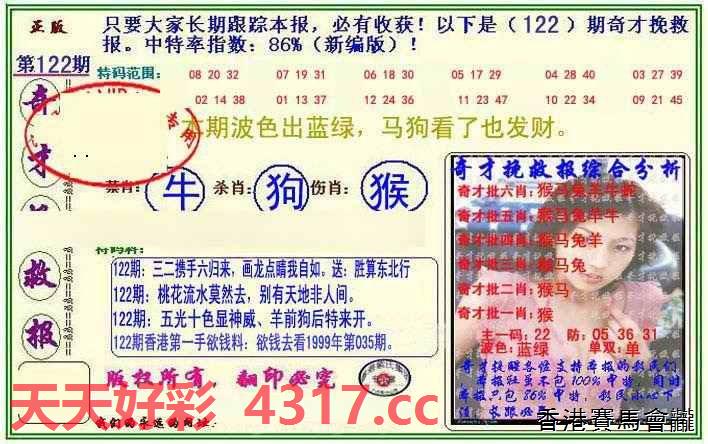 正版
只要大家长期跟踪本报，必有收获！以下是（122）期奇才挽救
报。中特率指数：86%（新编版）！
第122期
特码范围：
08 20 32 07 19 31 06 18 30 05 17 29 04 28 40 03 27 39
02 14 38 01 13 37 12 24 36 11 23 47 10 22 34 09 21 45
奇
才
救
报
专用
本期波色出蓝绿，马狗看了也发财。
禁肖：牛 杀肖：狗 伤肖：猴
特码料：
122期：三二携手六归来，画龙点睛我自如。送：胜算东北行
122期：桃花流水莫然去，别有天地非人间。
122期：五光十色显神威、羊前狗后特来开。
122期香港第一手欲钱料：欲钱去看1999年第035期。
版权所有，翻印必究
我们的永远的网址：
奇才挽救报综合分析
奇才批六肖：猴马兔羊牛蛇
奇才批五肖：猴马兔羊牛
奇才批四肖：猴马兔羊
奇才批三肖：猴马兔
奇才批二肖：猴马
奇才批一肖：猴
主一码：22 防：05 36 31
波色：蓝绿 单双：单
天天好彩 4317.cc
香港賽馬會